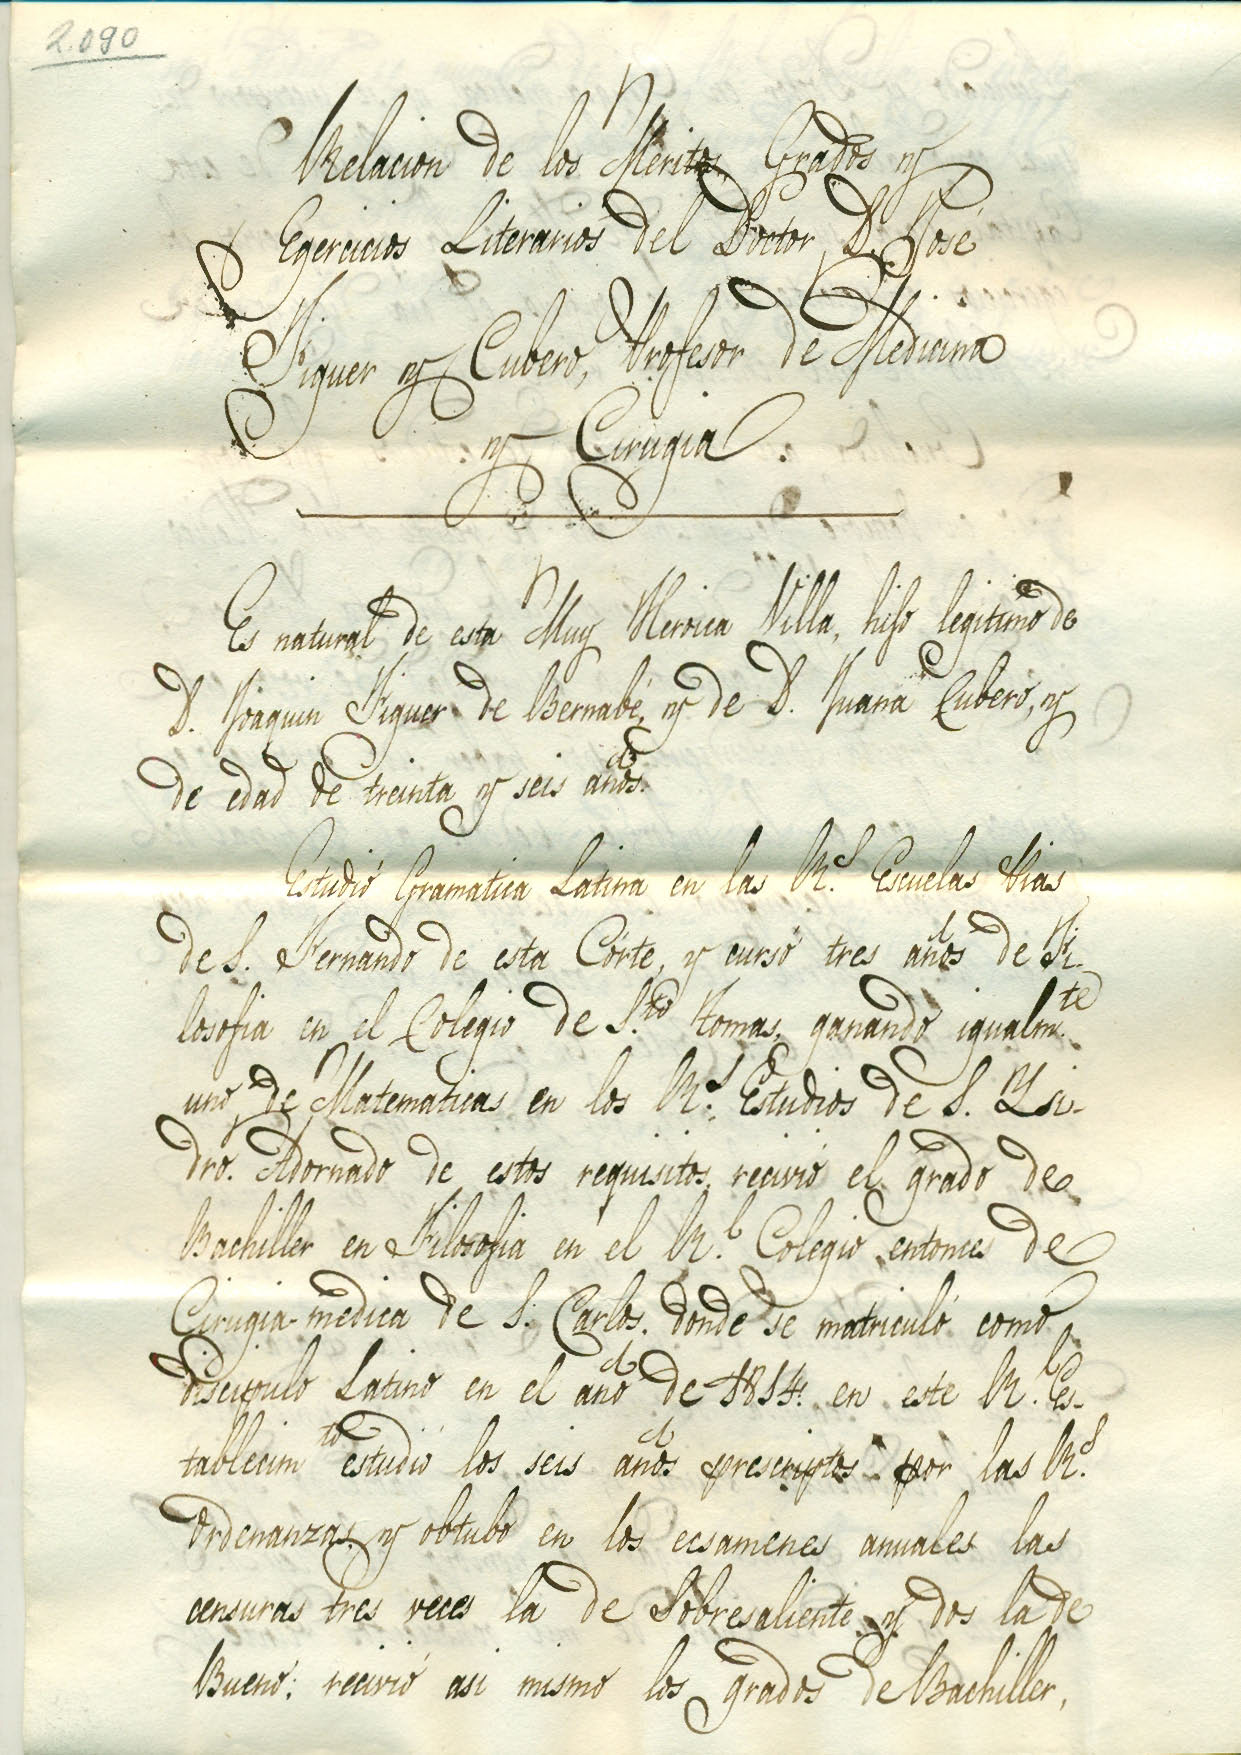 2.090
Relacion de los Meritos, Grados y
Egercicios Literarios del Doctor D. José
Figuer y Cubero, Profesor de Medicina
y Cirugia.
Es natural de esta Muy Heroica Villa, hijo legitimo de
D. Joaquin Figuer de Bernabé, y de D. Juana Cubero, y
de edad de treinta y seis años.
Estudió Gramatica Latina en las R.s Escuelas Pias
de S. Fernando de esta Córte, y cursó tres años de Fi-
losofia en el Colegio de S.to Tomas, ganando igualm.te
uno de Matematicas en los R.s Estudios de S. Ysi-
dro. Adornado de estos requisitos, recivió el grado de
Bachiller en Filosofia en el R.l Colegio entonces de
Cirugia-medica de S. Carlos, donde se matriculó como
discipulo Latino en el año de 1814: en este R.l Es-
tablecim.to estudió los seis años prescriptos por las R.s
Ordenanzas, y obtubo en los ecsamenes anuales las
censuras tres veces la de Sobresaliente, y dos la de
Bueno; recivió asi mismo los grados de Bachiller,